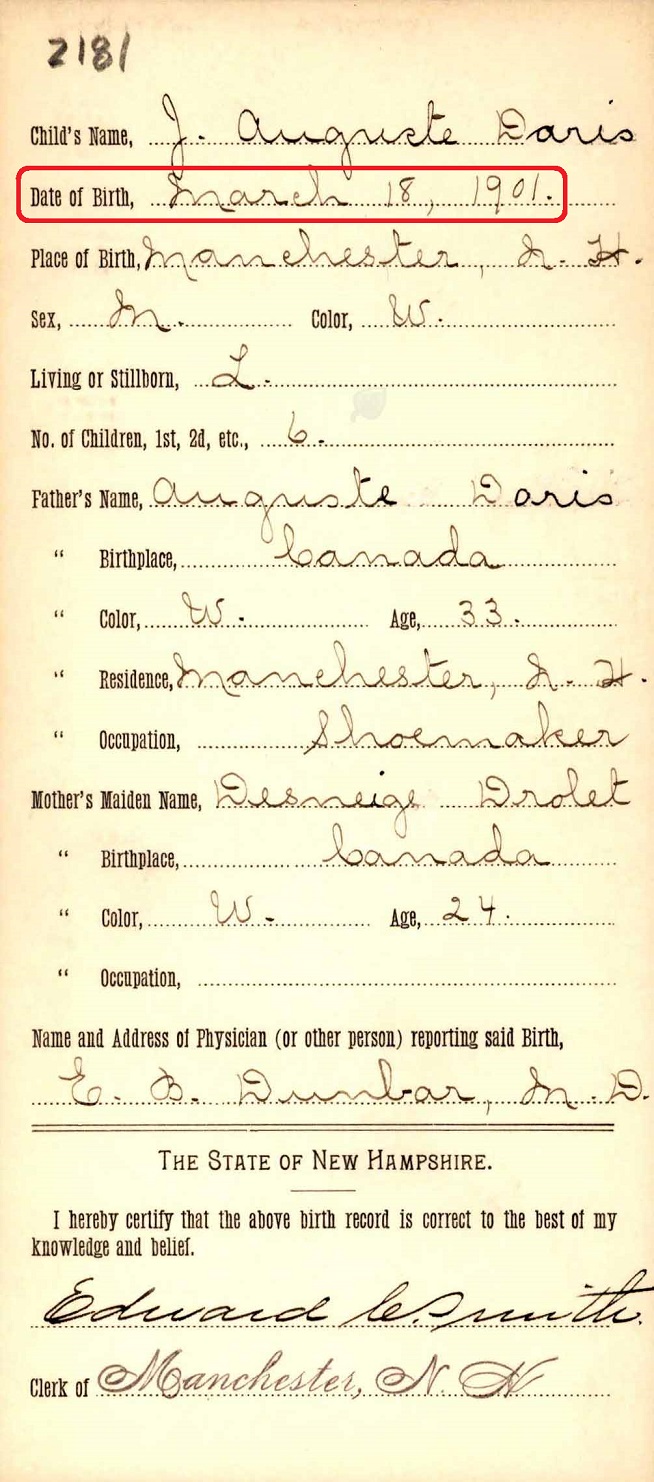 2181
Child's Name, J. Auguste Daris
Date of Birth, March 18, 1901.
Place of Birth, Manchester, N. H.
Sex, M. Color, W.
Living or Stillborn, L.
No. of Children, 1st, 2d, etc., 6.
Father's Name, Auguste Daris
" Birthplace, Canada
" Color, W. Age, 33.
" Residence, Manchester, N. H.
" Occupation, Shoemaker
Mother's Maiden Name, Desneige Drolet
" Birthplace, Canada
" Color, W. Age, 24.
" Occupation,
Name and Address of Physician (or other person) reporting said Birth,
E. B. Dunbar, M. D.
THE STATE OF NEW HAMPSHIRE.
I hereby certify that the above birth record is correct to the best of my
knowledge and belief.
Edward C. Smith.
Clerk of Manchester, N. H